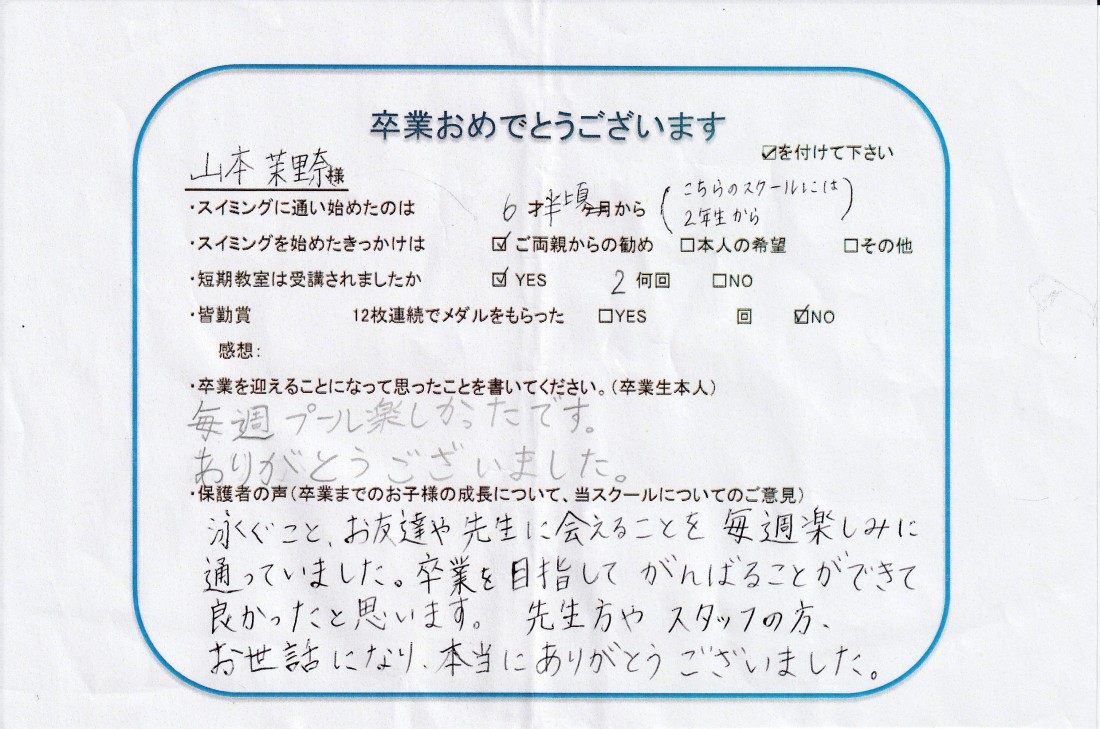 卒業おめでとうございます
☑を付けて下さい
山本 茉里奈様
・スイミングに通い始めたのは 6才半頃ヶ月から (こちらのスクールには
2年生から)
・スイミングを始めたきっかけは ☑ご両親からの勧め □本人の希望 □その他
・短期教室は受講されましたか ☑YES 2何回 □NO
・皆勤賞 12枚連続でメダルをもらった □YES 回 ☑NO
感想:
・卒業を迎えることになって思ったことを書いてください。(卒業生本人)
毎週プール楽しかったです。
ありがとうございました。
・保護者の声(卒業までのお子様の成長について、当スクールについてのご意見)
泳ぐこと、お友達や先生に会えることを毎週楽しみに
通っていました。卒業を目指してがんばることができて
良かったと思います。 先生方やスタッフの方、
お世話になり、本当にありがとうございました。